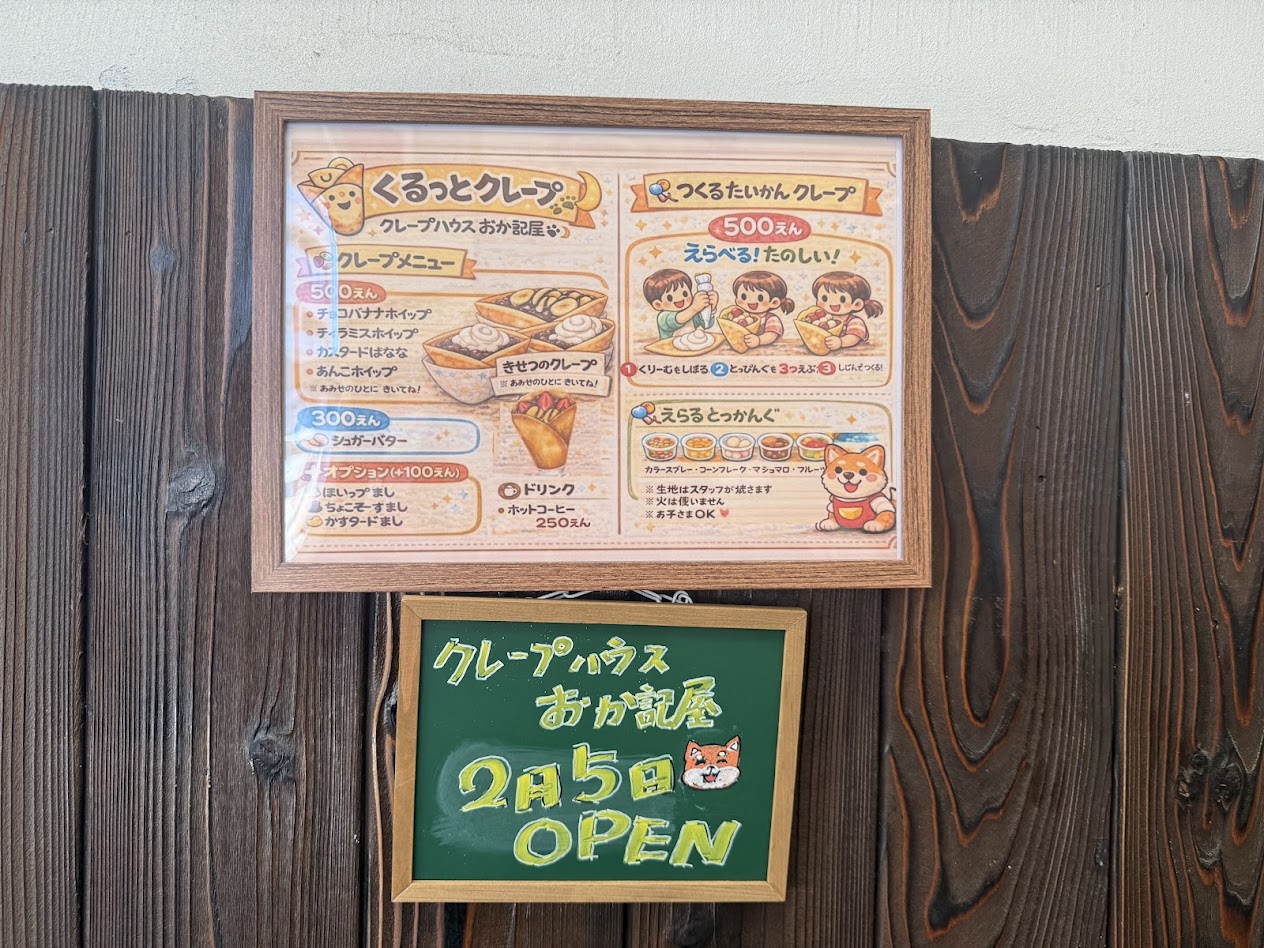 くるっとクレープ
クレープハウス おか記屋
クレープメニュー
500えん
・チョコバナナホイップ
・ティラミスホイップ
・カスタードばなな
・あんこホイップ
※ おみせのひとに きいてね!
きせつのクレープ
※ おみせのひとに きいてね!
300えん
シュガーバター
+オプション(+100えん)
ほいっプ まし
ちょこそーす まし
かすタード まし
ドリンク
・ホットコーヒー
250えん
つくる たいかん クレープ
500えん
えらべる! たのしい!
1 くりーむもしぼる 2 とっぴんぐも 3つえぶ 3
えらる とっかんぐ
カラースプレー・コーンフレーク・マショマロ・フルーツ
※ 生地はスタッフが焼きます
※ 火は使いません
※ お子さまOK
クレープハウス
おか記屋
2月5日
OPEN